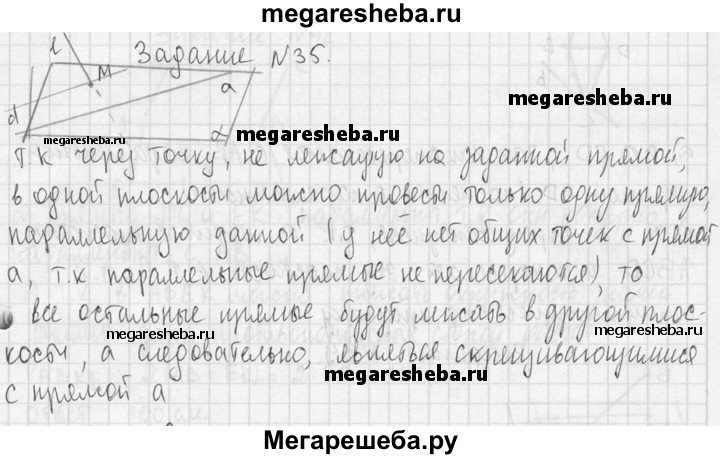 megaresheba.ru
Задание №35.
l
M
a
d
α
megaresheba.ru
megaresheba.ru
megaresheba.ru
т.к через точку, не лежащую на заданной прямой,
в одной плоскосы можно провесы только одну прямую,
параллельную данной (у неё нет общих точек с прямой
а, т.к параллельные прямые не пересекаются), то
все остальные прямые будут лежать в другой плос-
megaresheba.ru
megaresheba.ru
косы, а следовательно, являться скрещивающимися
megaresheba.ru
с прямой а
Мегарешеба.ру